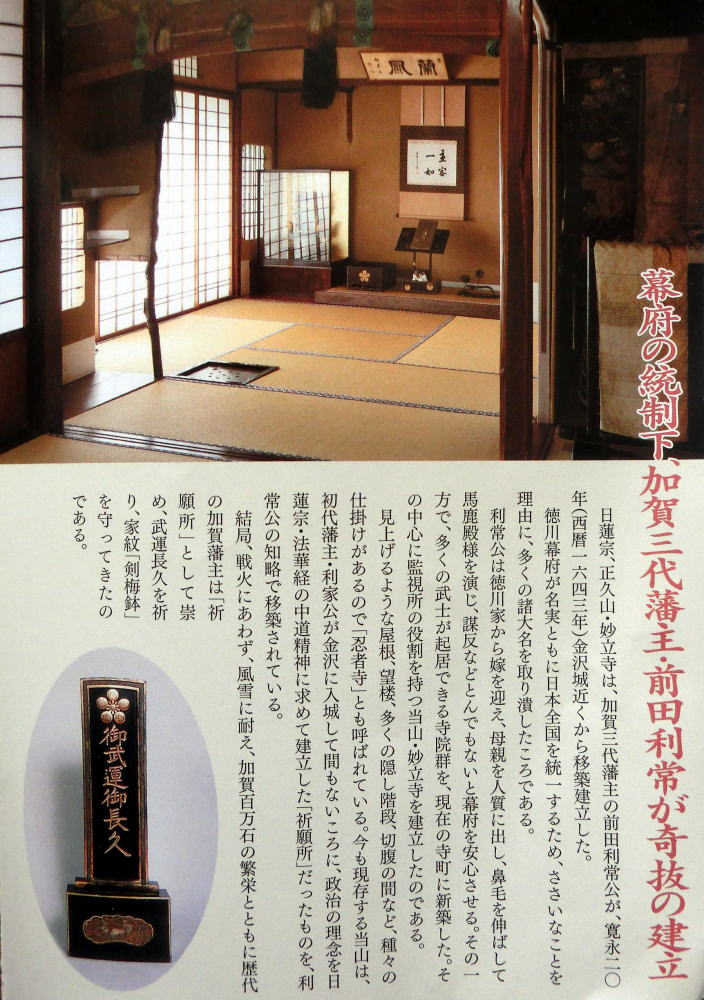 幕府の統制下、加賀三代藩主・前田利常が奇抜の建立
日蓮宗、正久山・妙立寺は、加賀三代藩主の前田利常公が、寛永二〇
年(西暦一六四三年)金沢城近くから移築建立した。
徳川幕府が名実ともに日本全国を統一するため、ささいなことを
理由に、多くの諸大名を取り潰したころである。
利常公は徳川家から嫁を迎え、母親を人質に出し、鼻毛を伸ばして
馬鹿殿様を演じ、謀反などとんでもないと幕府を安心させる。その一
方で、多くの武士が起居できる寺院群を、現在の寺町に新築した。そ
の中心に監視所の役割を持つ当山・妙立寺を建立したのである。
見上げるような屋根、望楼、多くの隠し階段、切腹の間など、種々の
仕掛けがあるので「忍者寺」とも呼ばれている。今も現存する当山は、
初代藩主・利家公が金沢に入城して間もないころに、政治の理念を日
蓮宗・法華経の中道精神に求めて建立した「祈願所」だったものを、利
常公の知略で移築されている。
結局、戦火にあわず、風雪に耐え、加賀百万石の繁栄とともに歴代
の加賀藩主は「祈
願所」として崇
め、武運長久を祈
り、家紋「剣梅鉢」
を守ってきたの
である。
蘭風
主客
一如
御武運御長久